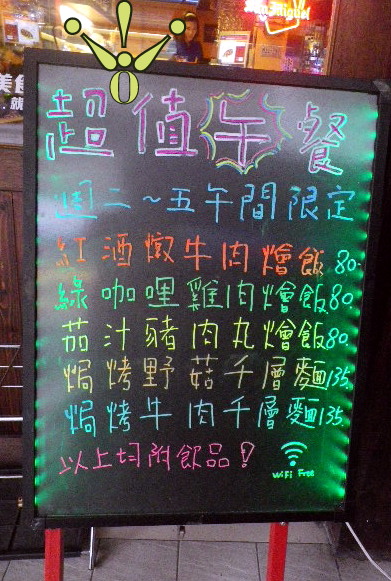 San Miguel
美食
就
超值午餐
週二~五午間限定
紅酒燉牛肉燴飯80.
綠咖哩雞肉燴飯80.
茄汁豬肉丸燴飯80.
焗烤野菇千層麵135.
焗烤牛肉千層麵135.
以上均附飲品!
WiFi Free